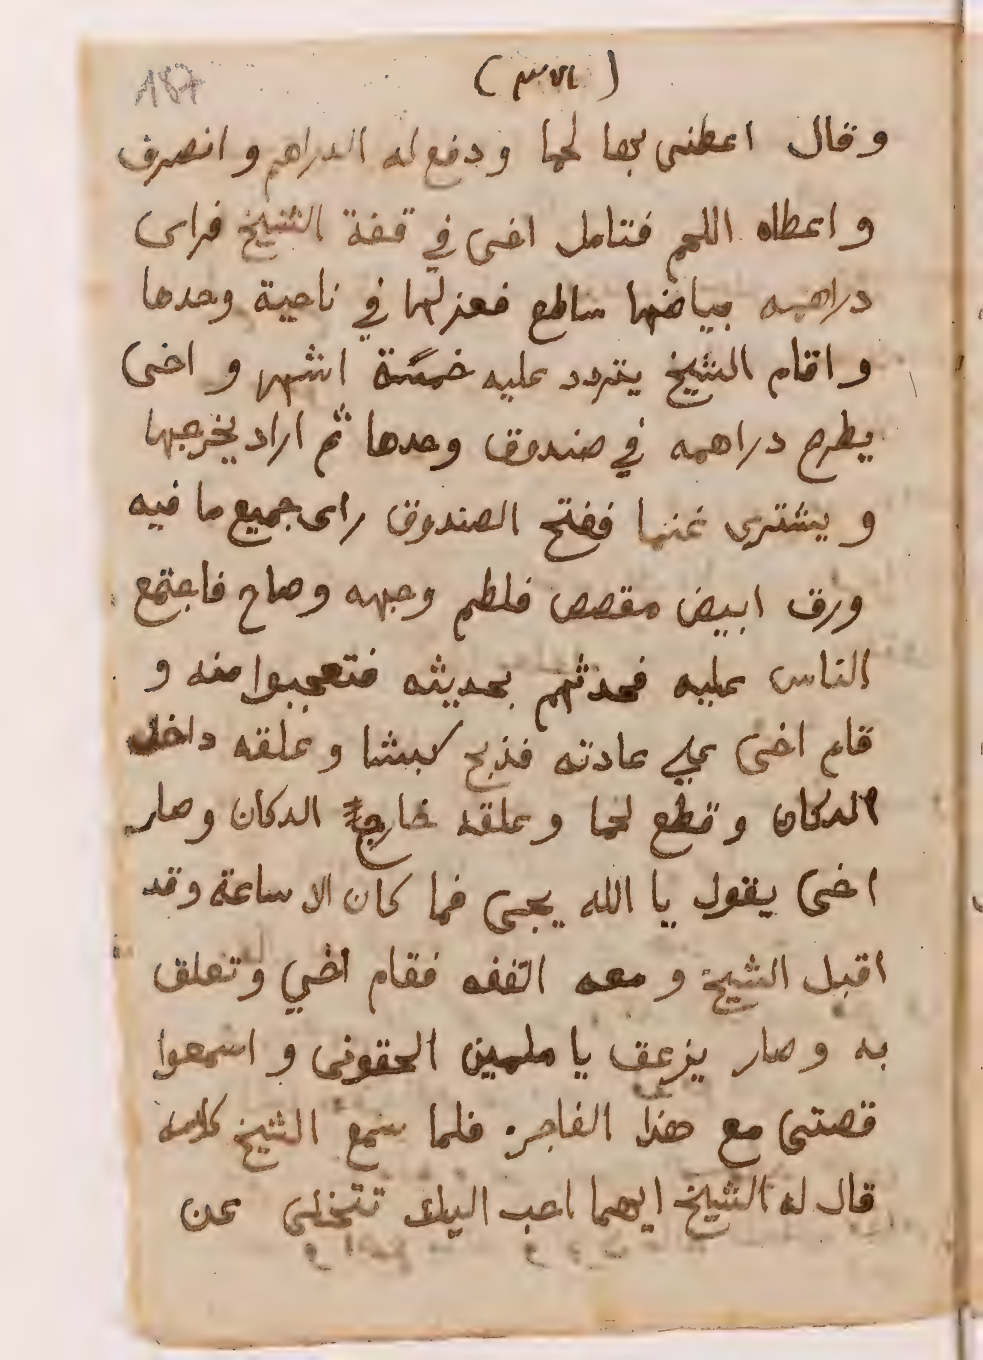 187
وقال اعطنى بها لحما ودفع له الدراهم وانصرف
واعطاه اللحم فتامل اخى في قفة الشيخ فراى
دراهمه بياضها ساطع فعزلها في ناحية وحدها
واقام الشيخ يتردد عليه خمسة اشهر واخى
يطرح دراهمه في صندوق وحدها ثم اراد يخرجها
ويشترى غنما ففتح الصندوق راى جميع ما فيه
ورق ابيض مقصص فلطم وجهه وصاح فاجتمع
الناس عليه فحدثهم بحديثه فتعجبوا منه و
قام اخى على عادته فذبح كبشا وعلقه داخل
الدكان وقطع لحما وعلقه خارج الدكان وصار
اخى يقول يا الله يجى فما كان الا ساعة وقد
اقبل الشيخ ومعه القفه فقام اخي وتعلق
به وصار يزعق يا ملمين الحقونى واسمعوا
قصتى مع هذا الفاجر فلما سمع الشيخ كلامه
قال له الشيخ ايهما احب اليك تتخلى عن